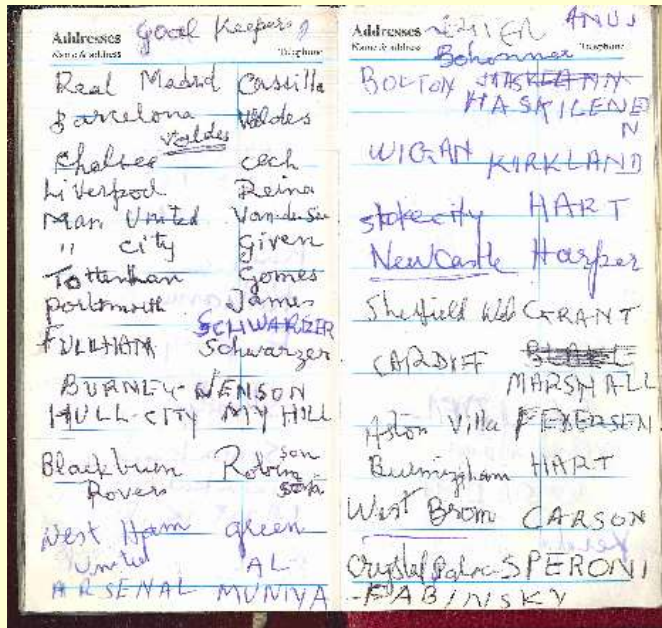 Addresses Goal Keepers
Name & address Telephone
Real Madrid Casilla
Barcelona Valdes
Valdes
Chelsee cech
Liverpool Reina
Man United Van der Sar
" City Given
Tottenham Gomes
Portsmouth James
SCHWARZER
FULLHAM Schwarzer
BURNLEY JENSON
HULL-CITY MY HILL
Blackburn Robinson
Rovers
West Ham green
United AL
ARSENAL MUNIYA
Addresses
Name & address Telephone
BOLTON
WIGAN KIRKLAND
stoke city HART
Newcastle Harper
Sheffield Wed GRANT
CARDIFF
MARSHALL
Aston Villa
Burmingham HART
West Brom CARSON
Crystal Palace SPERONI
FABINSKY